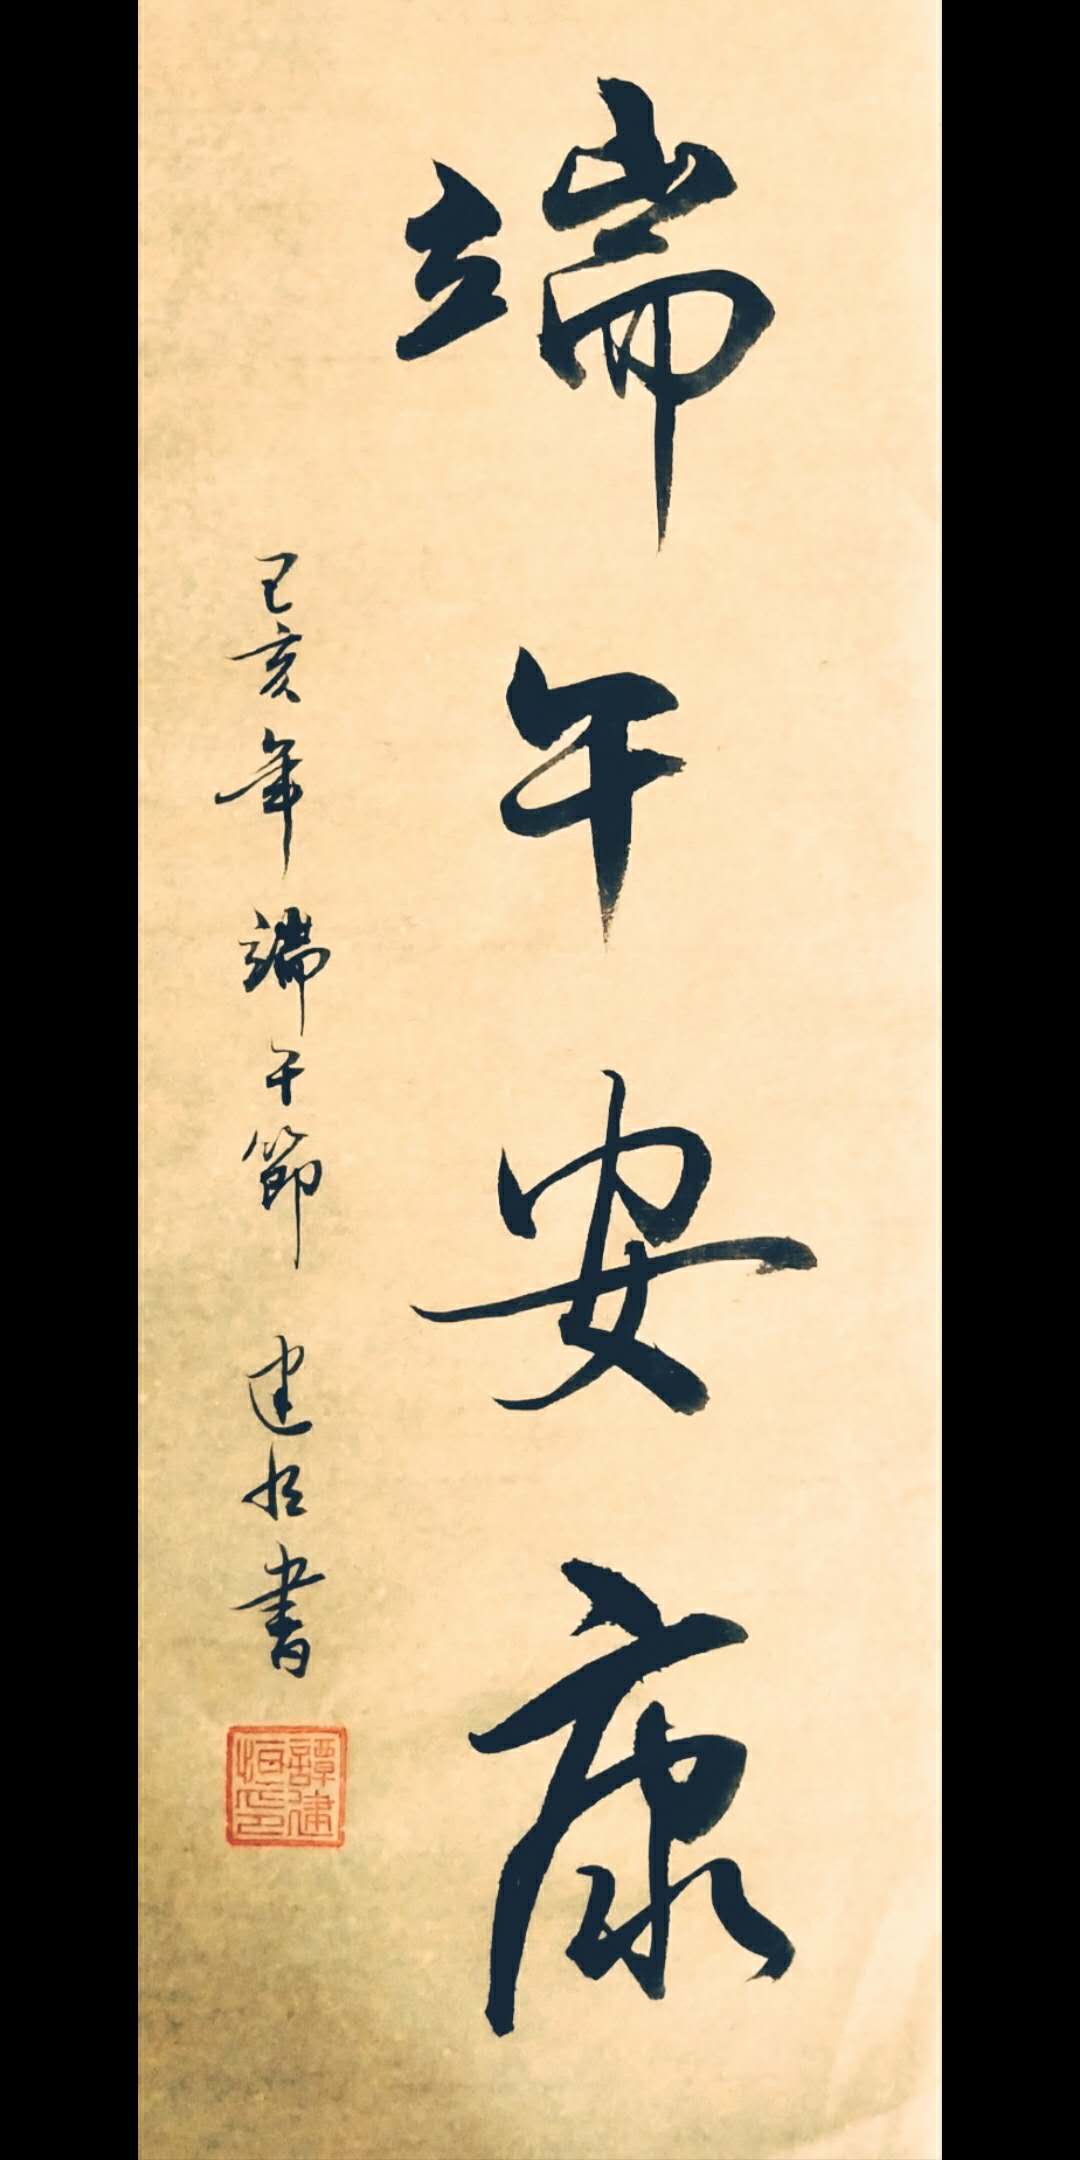 端午安康
己亥年端午節 建恒書
譚建恒印